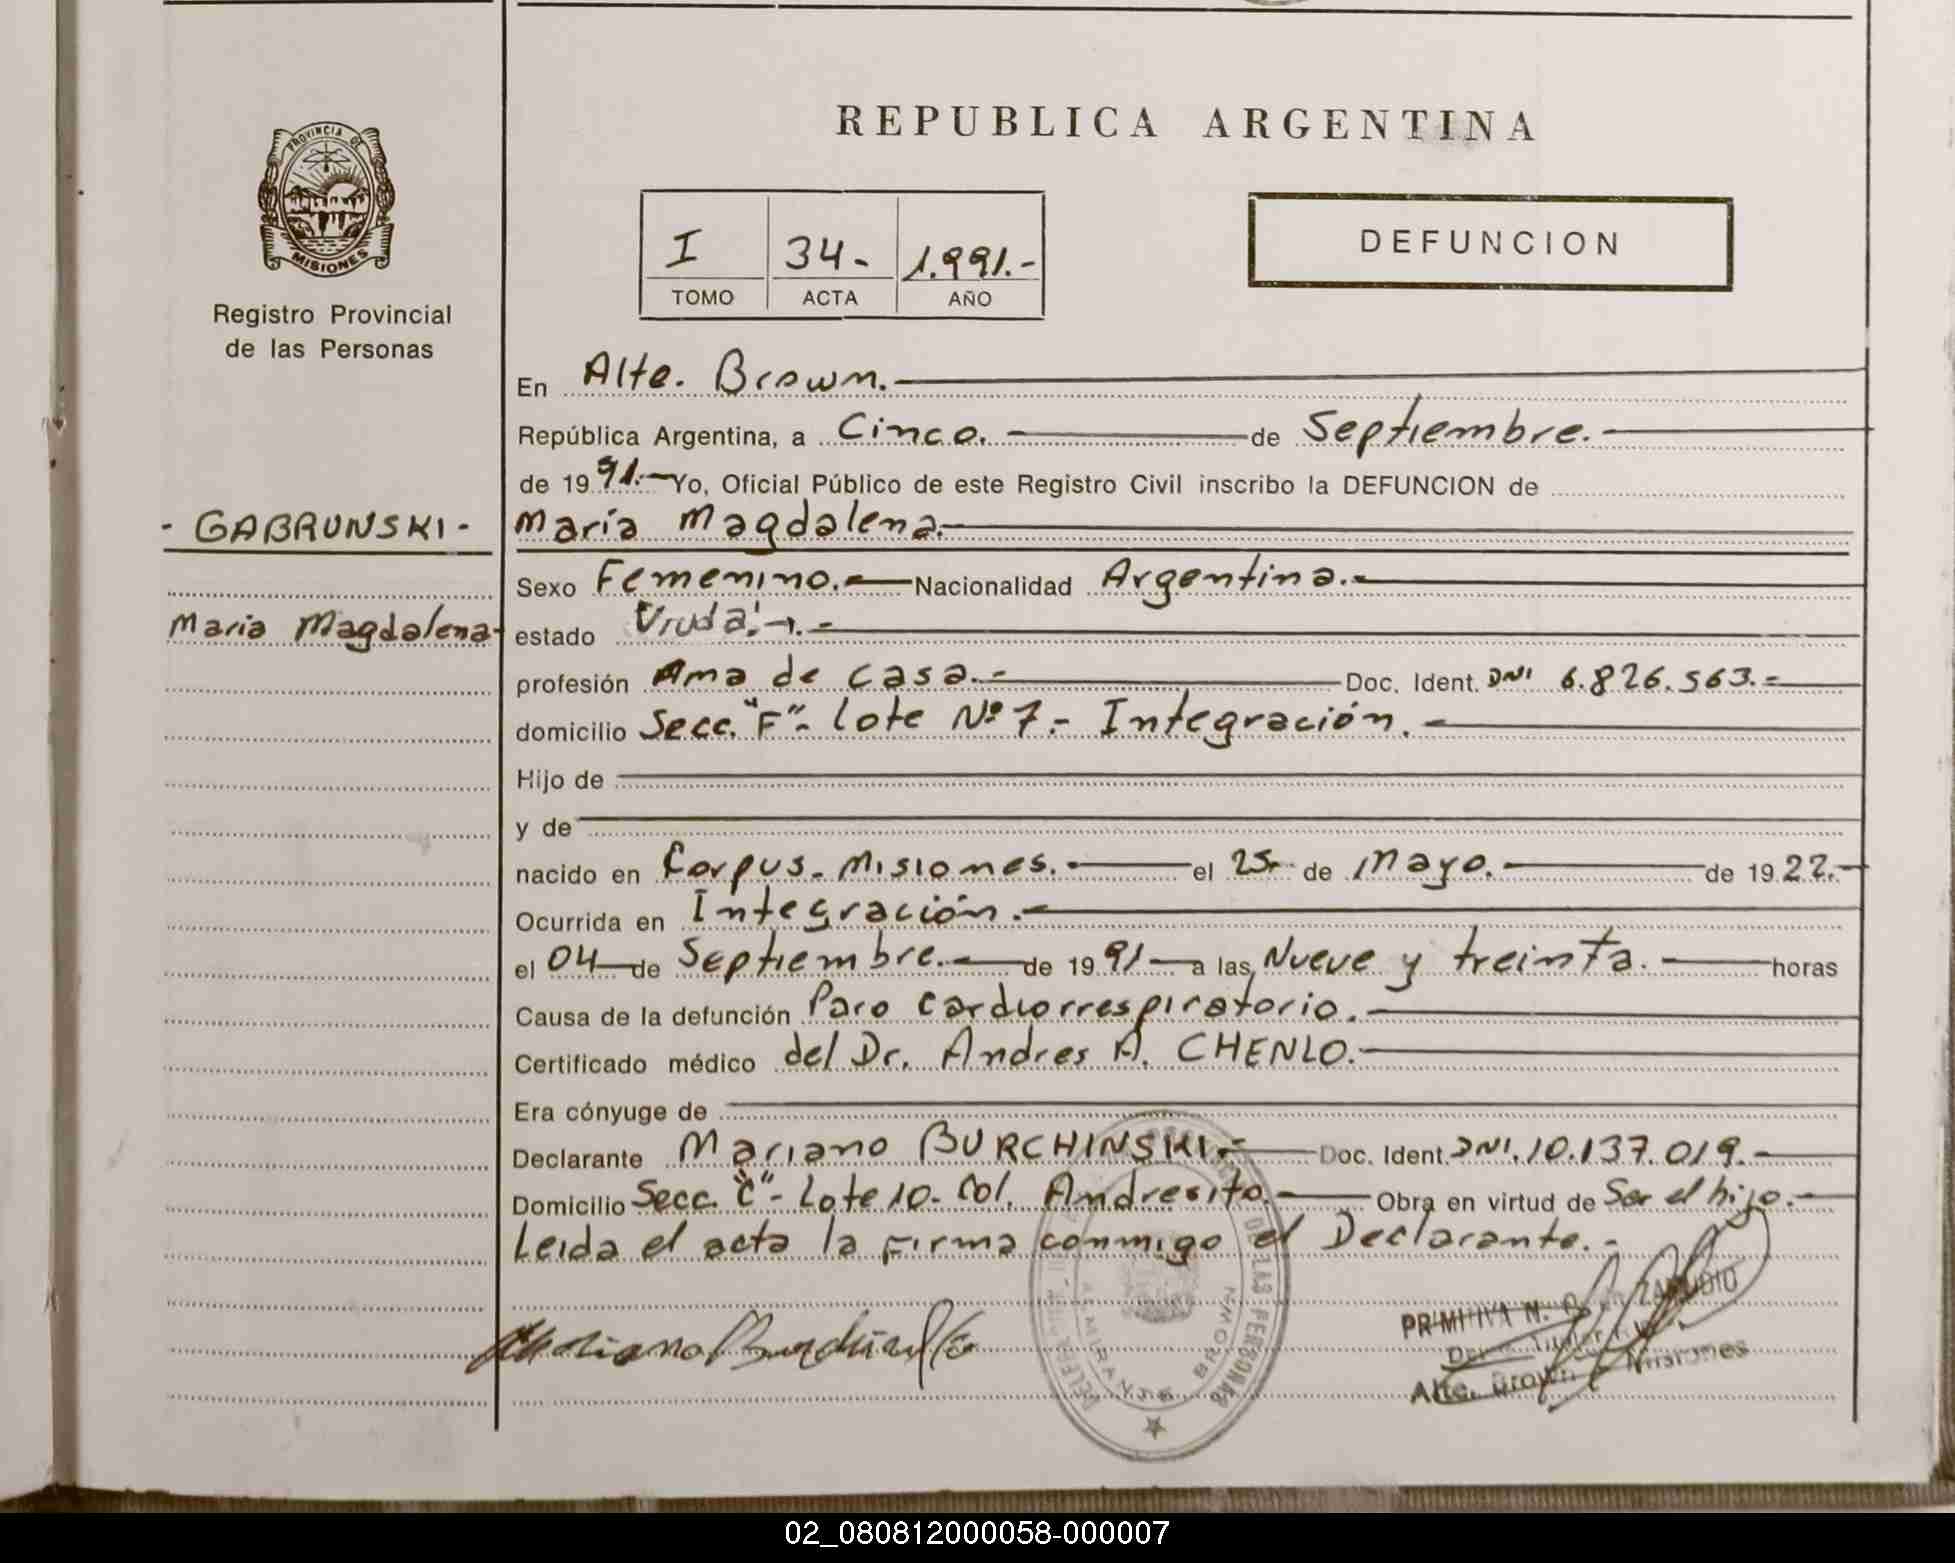 REPUBLICA ARGENTINA
PROVINCIA DE
MISIONES
Registro Provincial
de las Personas
I 34- 1.991.-
TOMO ACTA AÑO
DEFUNCION
- GABRUNSKI -
Maria Magdalena-
En Alte. Brown.
República Argentina, a Cinco. de Septiembre.
de 1991.- Yo, Oficial Público de este Registro Civil inscribo la DEFUNCION de
María Magdalena.
Sexo Femenino.- Nacionalidad Argentina.-
estado Viuda.-
profesión Ama de casa.- Doc. Ident. DNI 6.826.563.-
domicilio Secc. "F"- lote Nº 7.- Integración.-
Hijo de
y de
nacido en Corpus- Misiones.- el 25 de Mayo.- de 1922.-
Ocurrida en Integración.-
el 04 de Septiembre.- de 1991 a las Nueve y treinta.- horas
Causa de la defunción Paro cardiorrespiratorio.-
Certificado médico del Dr. Andres A. CHENLO.-
Era cónyuge de
Declarante Mariano BURCHINSKI.- Doc. Ident. DNI. 10.137.019.-
Domicilio Secc. "C"- Lote 10- Col. Andresito.- Obra en virtud de Ser el hijo.-
Leida el acta la firma conmigo el Declarante.-
DE LAS PERSONAS
ALMIRANTE BROWN
PRIMITIVA N. ZAMUDIO
Alte. Brown Misiones
02_080812000058-000007